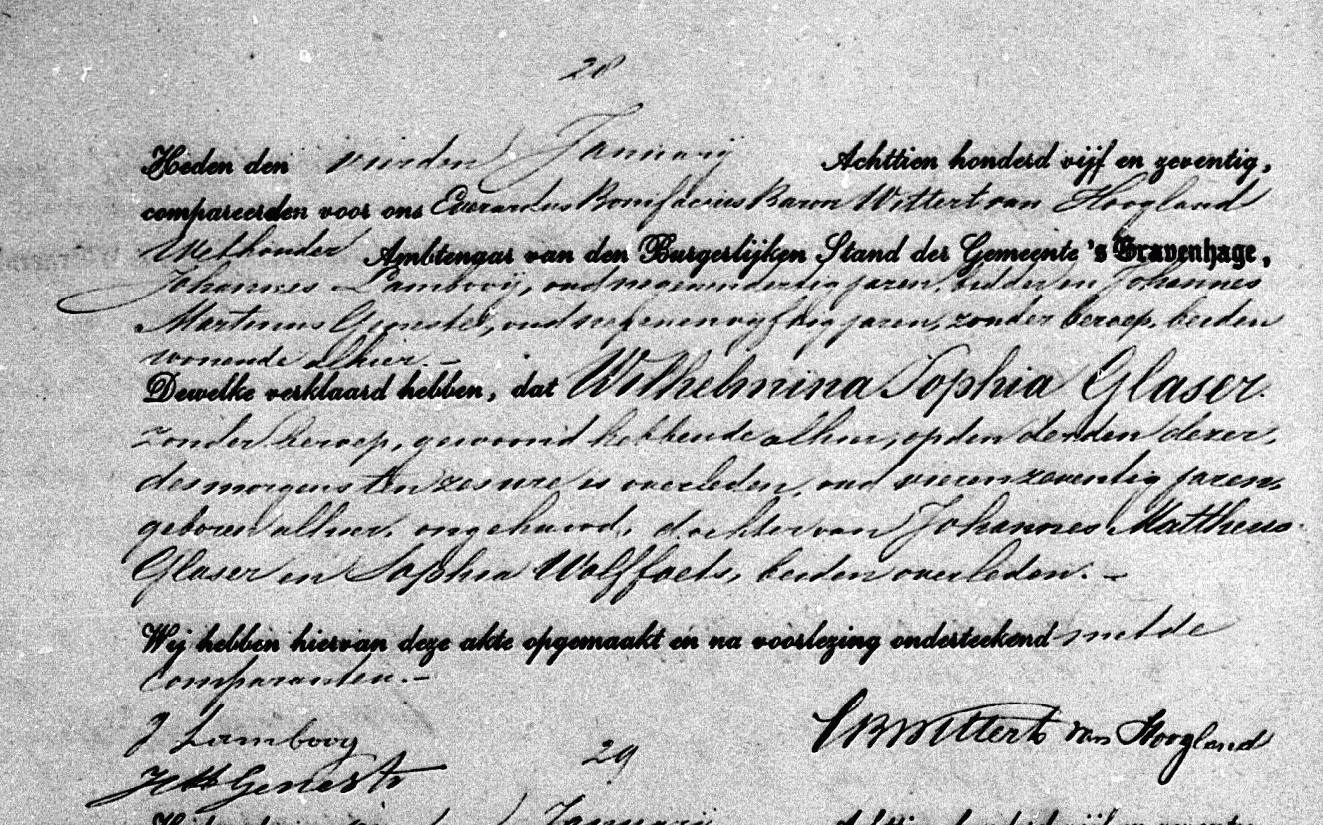 28
Heden den vierden Januarij Achttien honderd vijf en zeventig,
compareerden voor ons Everardus Bonifacius Baron Wittert van Hoogland
Wethouder Ambtenaar van den Burgerlijken Stand der Gemeente 's Gravenhage,
Johannes Lambooij, oud negenendertig jaren, bidder en Johannes
Martinus, oud zevenenvijftig jaren, zonder beroep, beiden
wonende alhier.—
Dewelke verklaard hebben, dat Wilhelmina Sophia Glaser.
zonder beroep, gewoond hebbende alhier, op den derden dezer,
des morgens ten zes ure is overleden, oud vierenzeventig jaren,
geboren alhier, ongehuwd, dochter van Johannes Mattheus
Glaser en Sophia Wolffoels, beiden overleden.—
Wij hebben hiervan deze akte opgemaakt en na voorlezing onderteekend met de
Comparanten.—
J Lambooy
EBWittert van Hoogland
29
Januarij